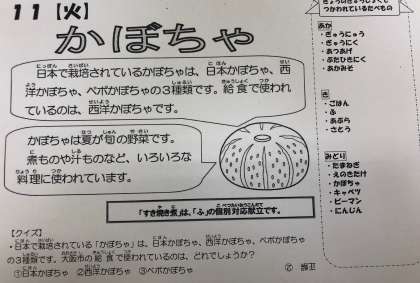 11【火】
かぼちゃ
日本で栽培されているかぼちゃは、日本かぼちゃ、西
洋かぼちゃ、ペポかぼちゃの3種類です。給食で使われ
ているのは、西洋かぼちゃです。
かぼちゃは夏が旬の野菜です。
煮ものや汁ものなど、いろいろな
料理に使われています。
「すき焼き煮」は、「ふ」の個別対応献立です。
【クイズ】
・日本で栽培されている「かぼちゃ」は、日本かぼちゃ、西洋かぼちゃ、ペポかぼちゃ
の3種類です。大阪市の給食で使われているのは、どれでしょうか？
①日本かぼちゃ ②西洋かぼちゃ ③ペポかぼちゃ
つかわれているたべもの
あか
・ぎゅうにゅう
・ぎゅうにく
・あつあげ
・ぶたひきにく
・あかみそ
き
・ごはん
・ふ
・あぶら
・さとう
みどり
・たまねぎ
・えのきたけ
・かぼちゃ
・キャベツ
・ピーマン
・にんじん